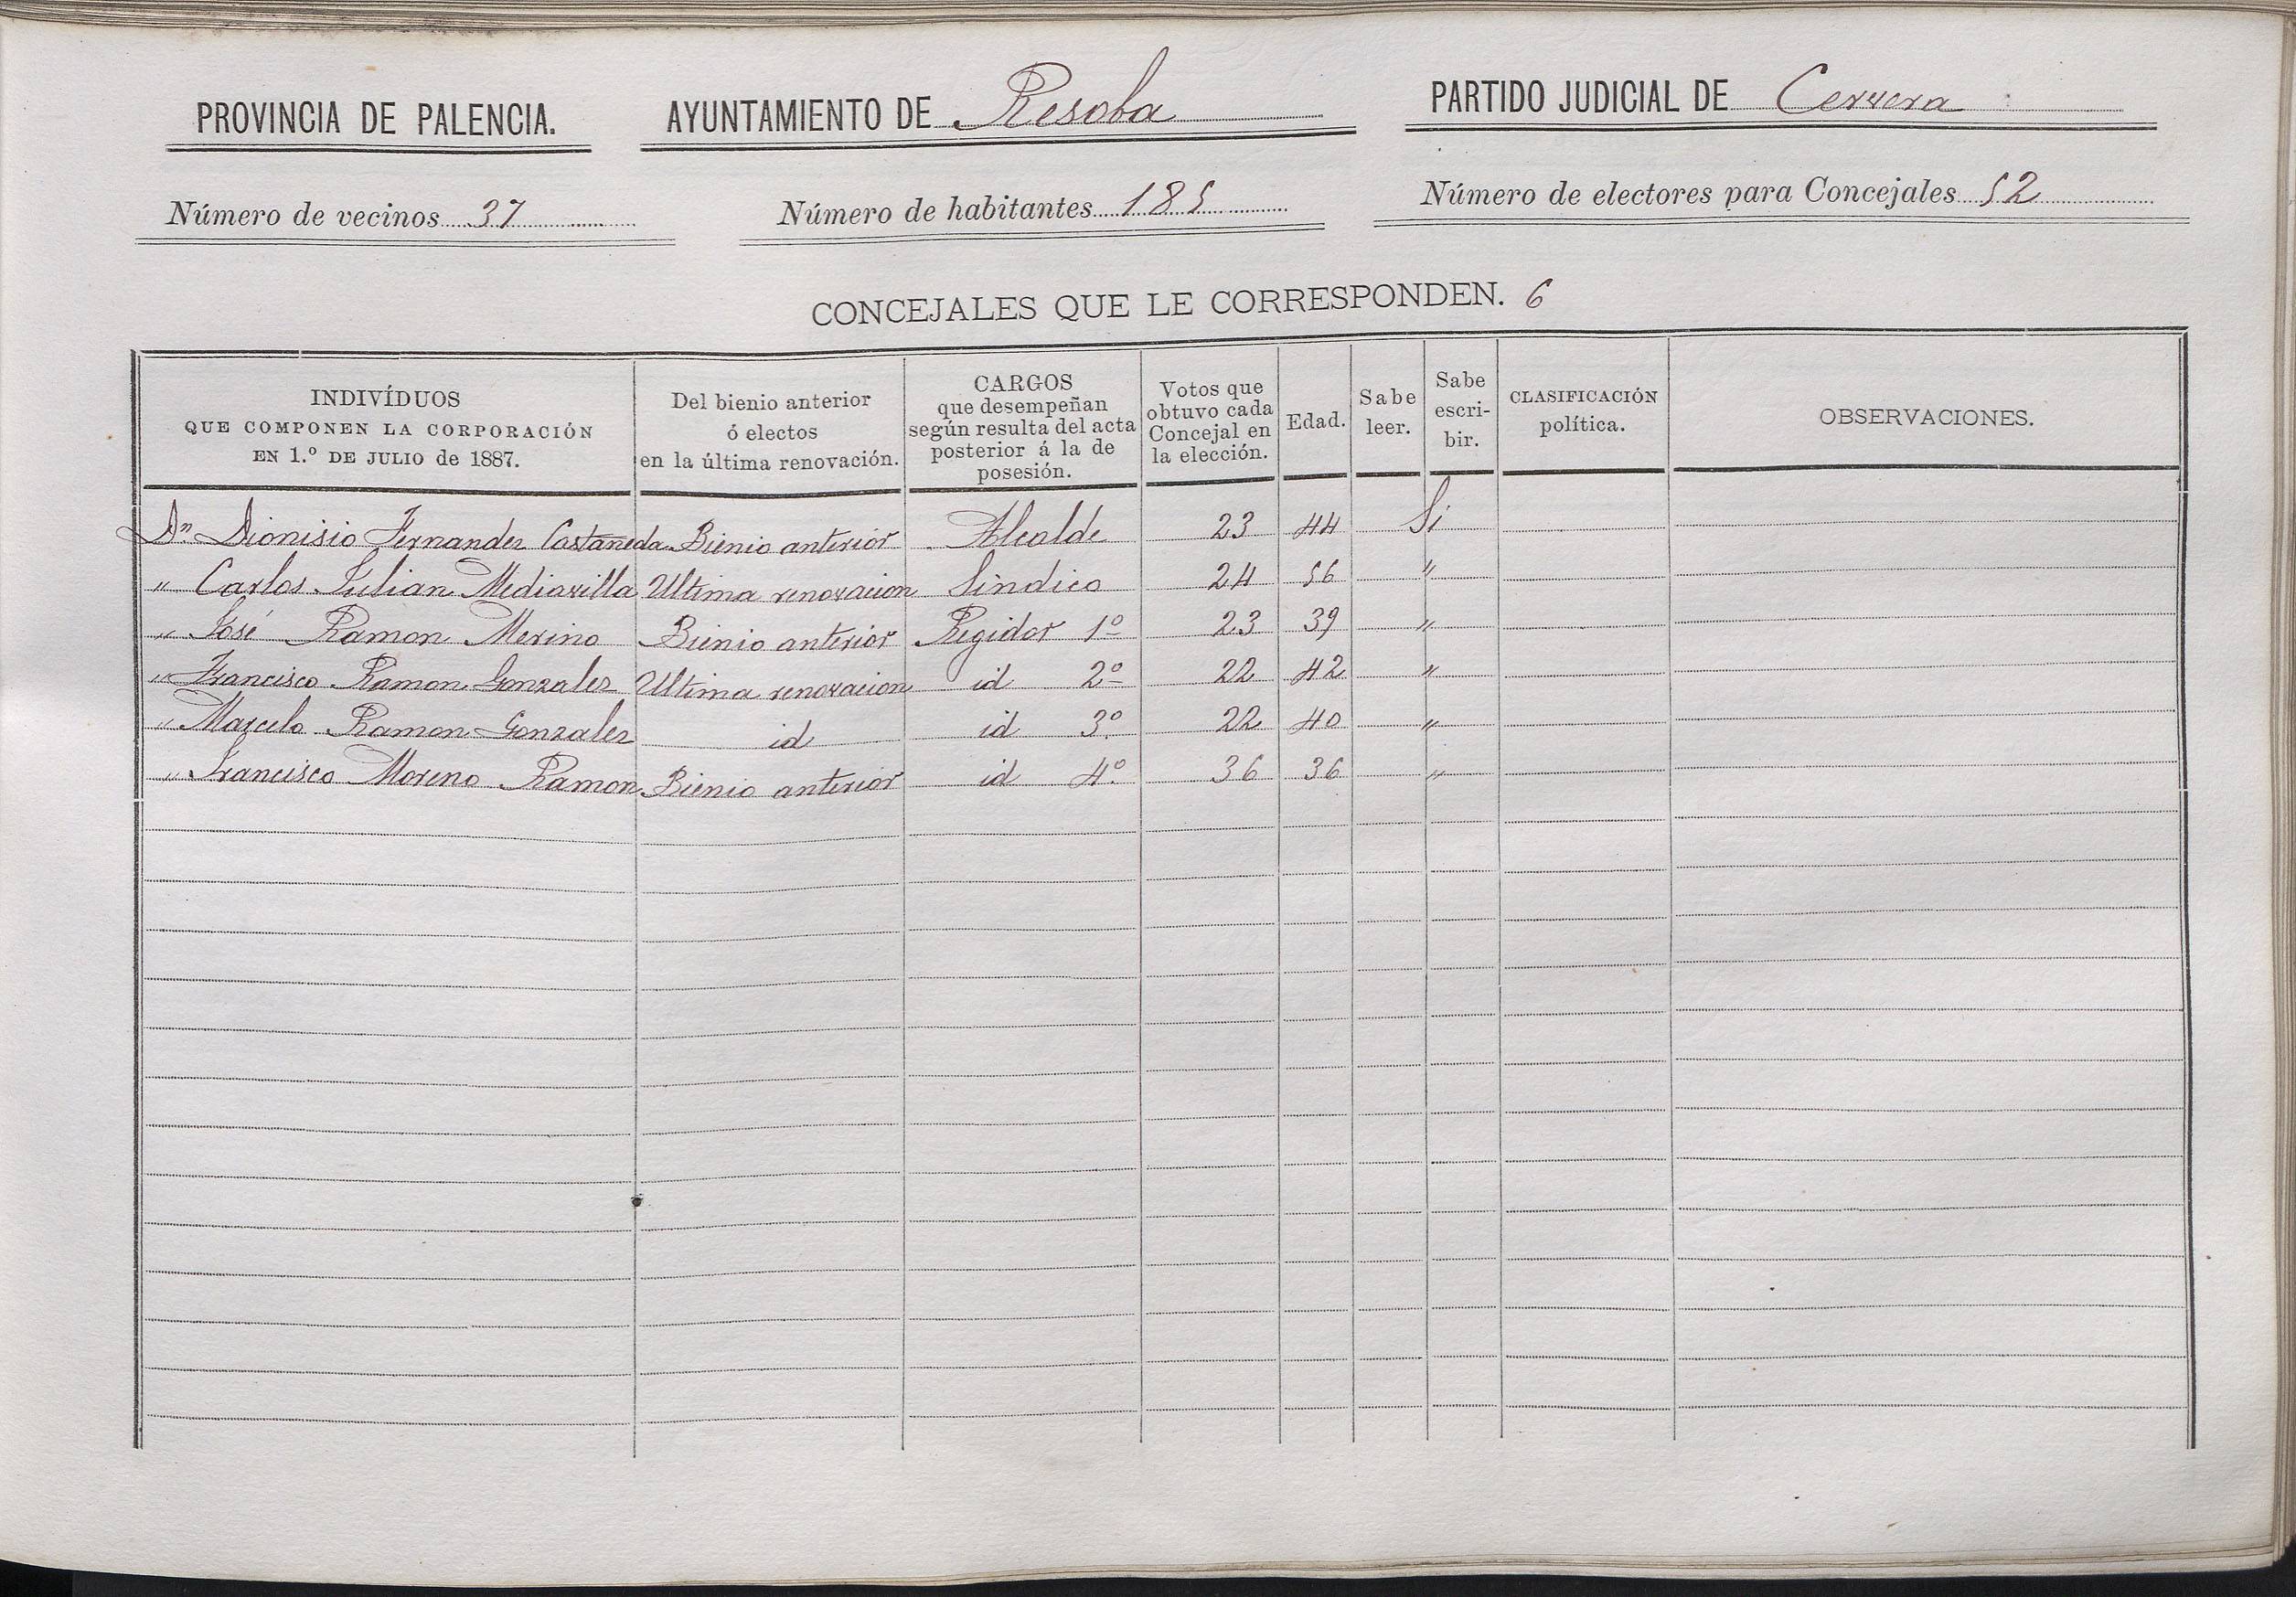 PROVINCIA DE PALENCIA. AYUNTAMIENTO DE Resoba PARTIDO JUDICIAL DE Cervera
Número de vecinos 37 Número de habitantes 185 Número de electores para Concejales 52
CONCEJALES QUE LE CORRESPONDEN. 6
INDIVÍDUOS
QUE COMPONEN LA CORPORACIÓN
EN 1.º DE JULIO de 1887.
Del bienio anterior
ó electos
en la última renovación.
CARGOS
que desempeñan
según resulta del acta
posterior á la de
posesión.
Votos que
obtuvo cada
Concejal en
la elección.
Edad.
Sabe
leer.
Sabe
escri-
bir.
CLASIFICACIÓN
política.
OBSERVACIONES.
Dn. Dionisio Fernandez Castañeda Bienio anterior Alcalde 23 44 Si
" Carlos Julian Mediavilla Ultima renovacion Sindico 24 56 "
" José Ramon Merino Bienio anterior Regidor 1º 23 39 "
" Francisco Ramon Gonzalez Ultima renovacion id 2º 22 42 "
" Marcelo Ramon Gonzalez id id 3º 22 40 "
" Francisco Moreno Ramon Bienio anterior id 4º 36 36 "